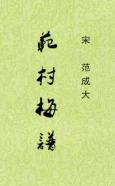 宋 范成大
范村梅譜